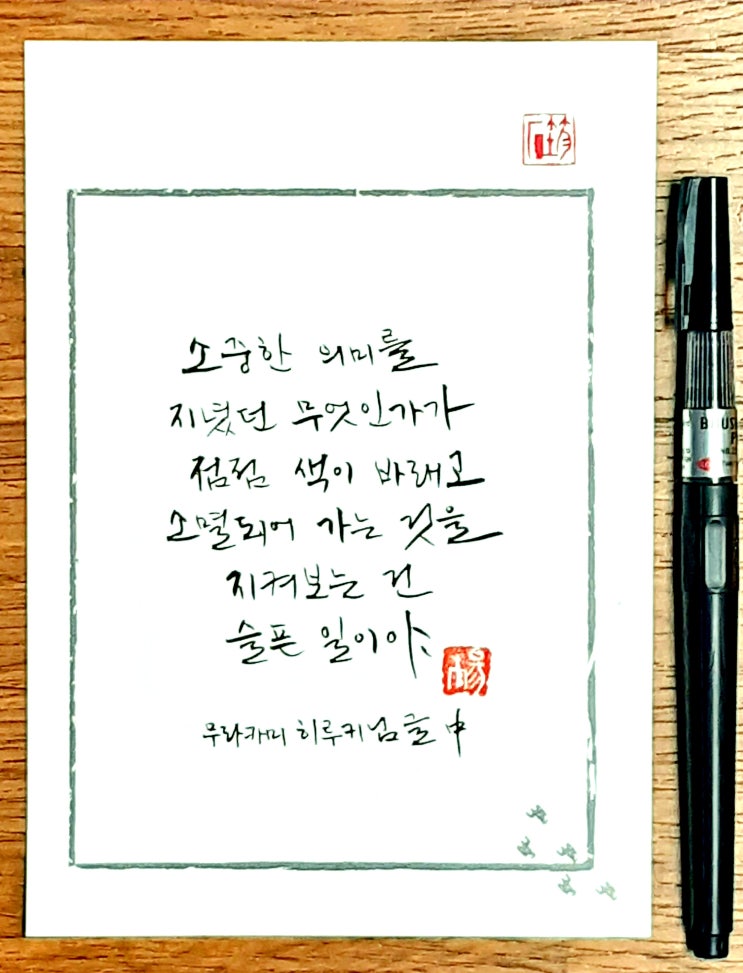 소중한 의미를
지녔던 무엇인가가
점점 색이 바래고
소멸되어 가는 것을
지켜보는 건
슬픈 일이야.
무라카미 히루키님 글 中